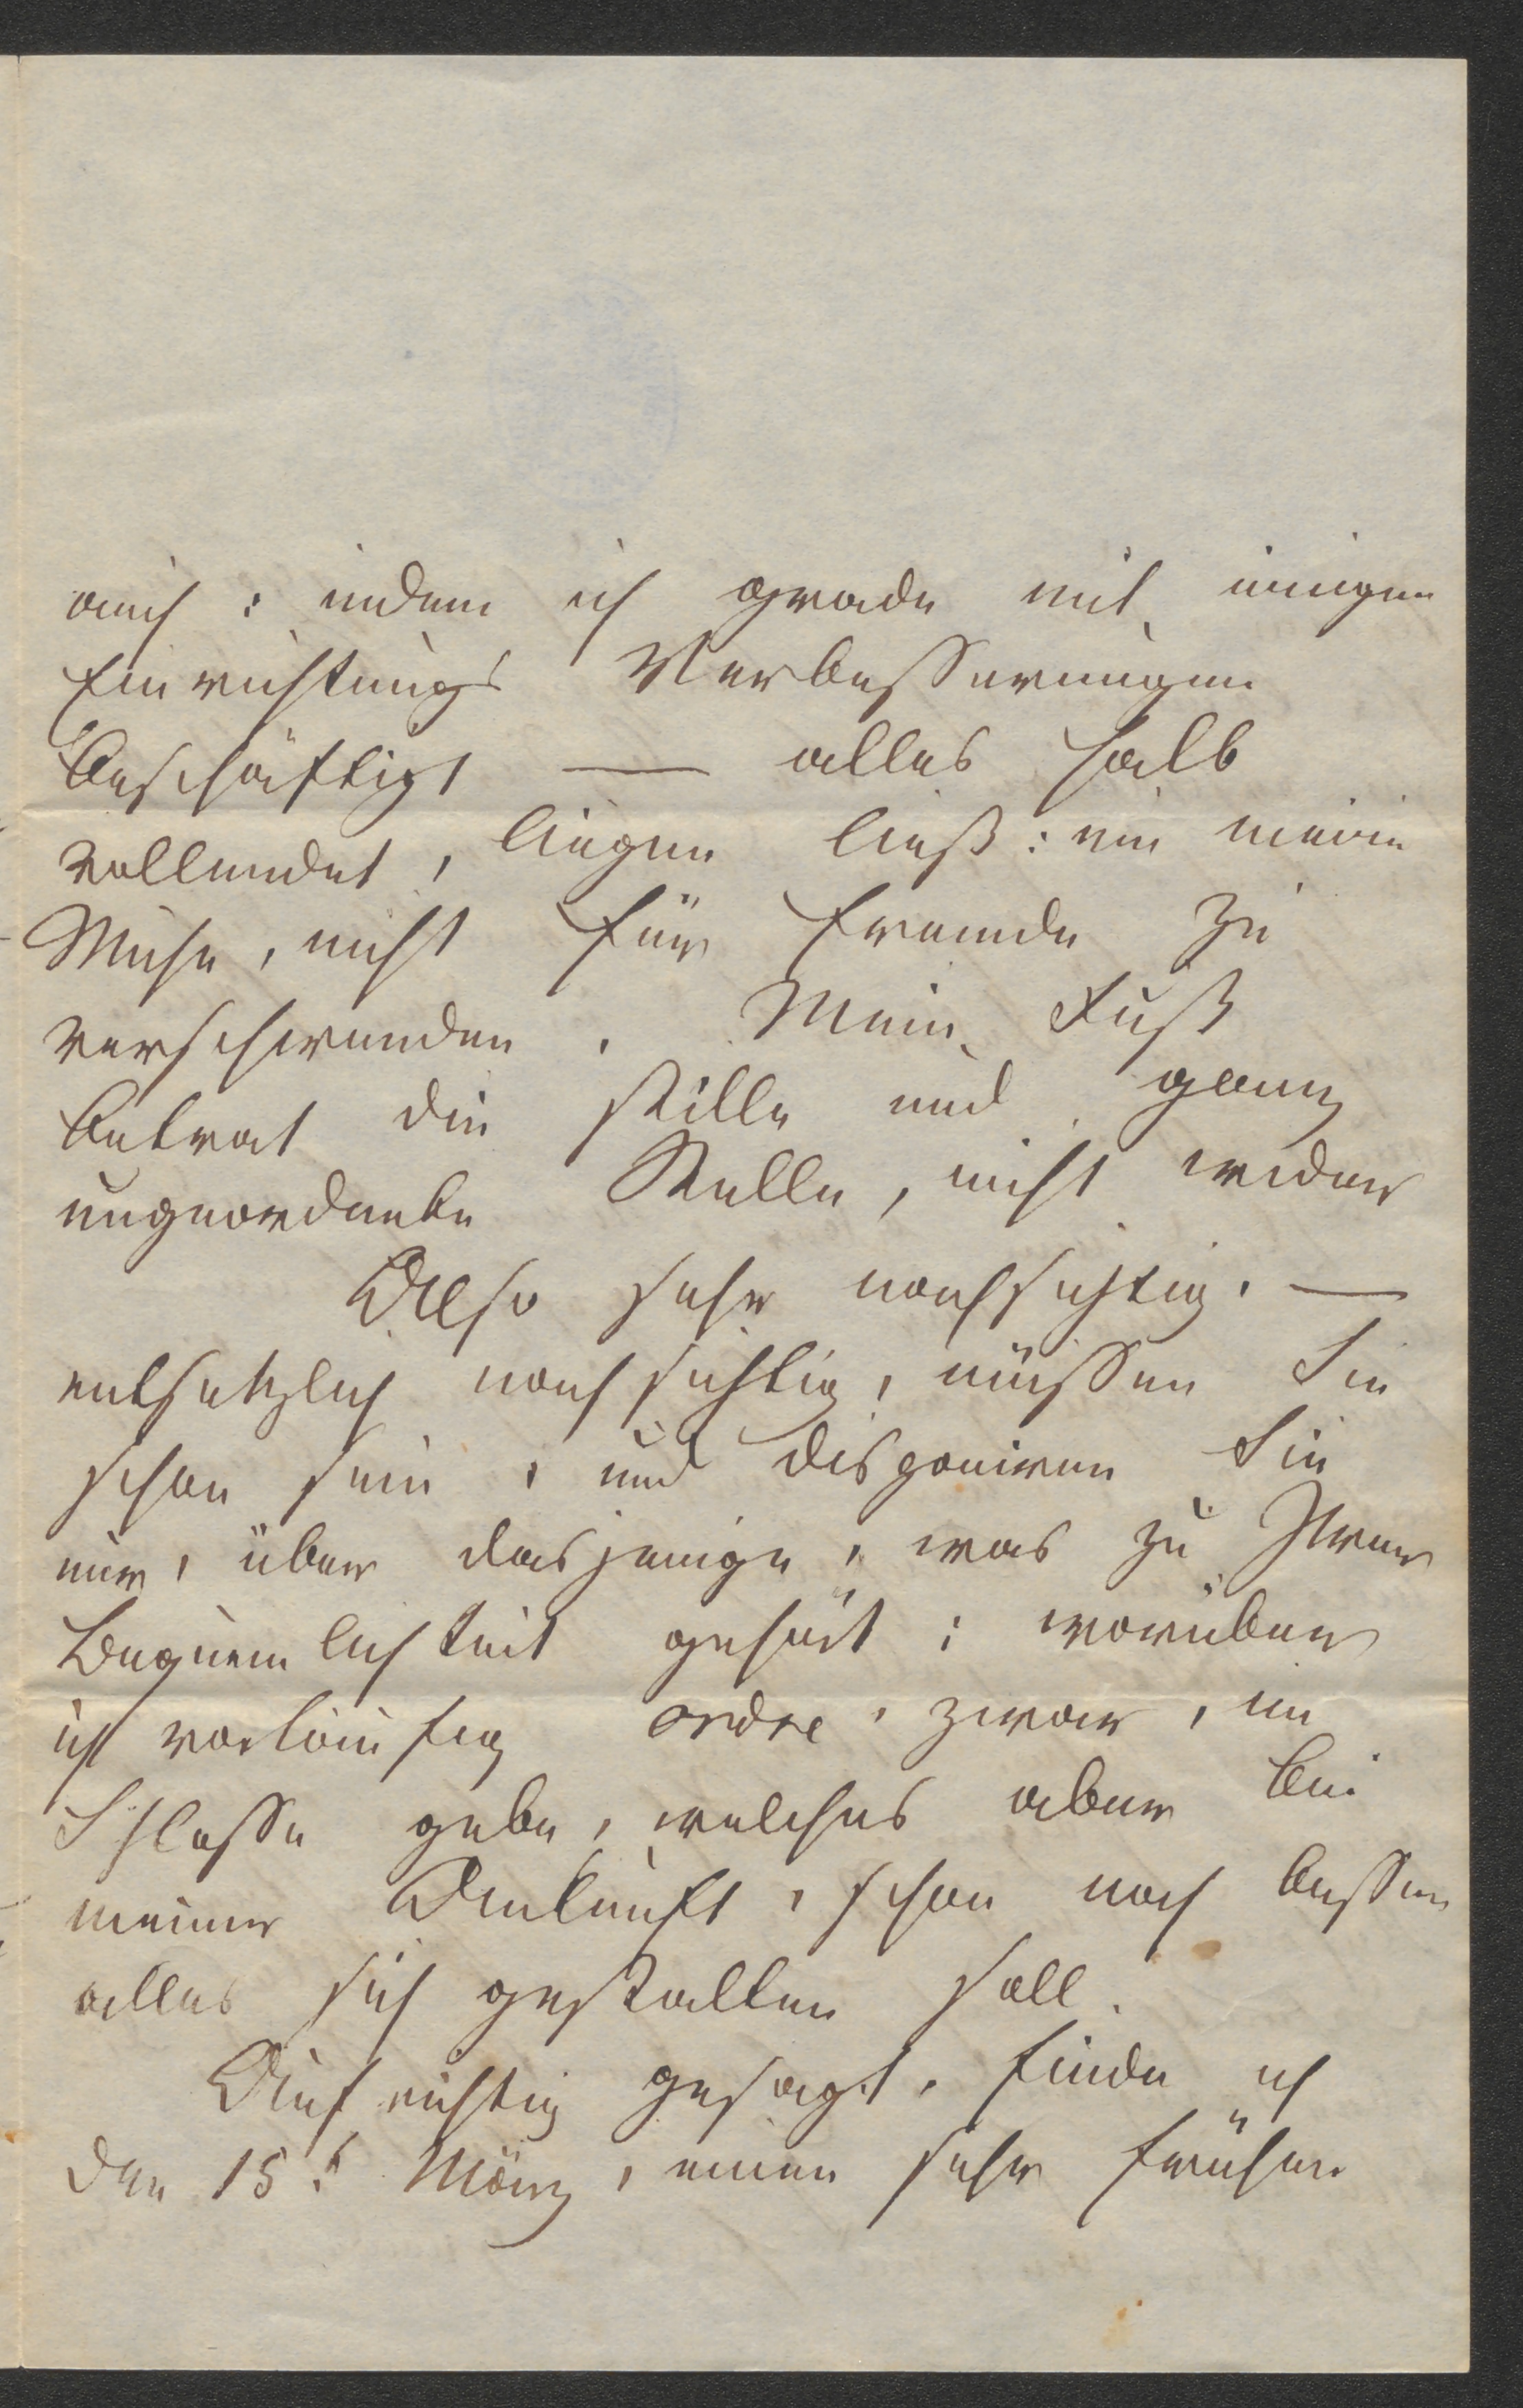 auch : indem ich grade mit einigen
Einrichtungs Verbesserungen
beschäftigt — alles halb
vollendet, liegen ließ : um meine
Mühe, nicht für Fremde zu
verschwenden. Mein Fuß
betrat die stille und ganz
ungeordnete Stelle, nicht wieder
Also sehr nachsichtig. —
entsetzlich nachsichtig, müssen Sie
schon sein, und disponiren Sie
nur, über dasjenige, was zu Ihrer
Bequemlichkeit gehört ; worüber
ich vorläufig ordre, zwar, im
Schlosse gebe, welches aber bei
meiner Ankunft, schon noch besser
alles sich gestalten soll.
Aufrichtig gesagt, finde ich
den 15t März, einen sehr frühen